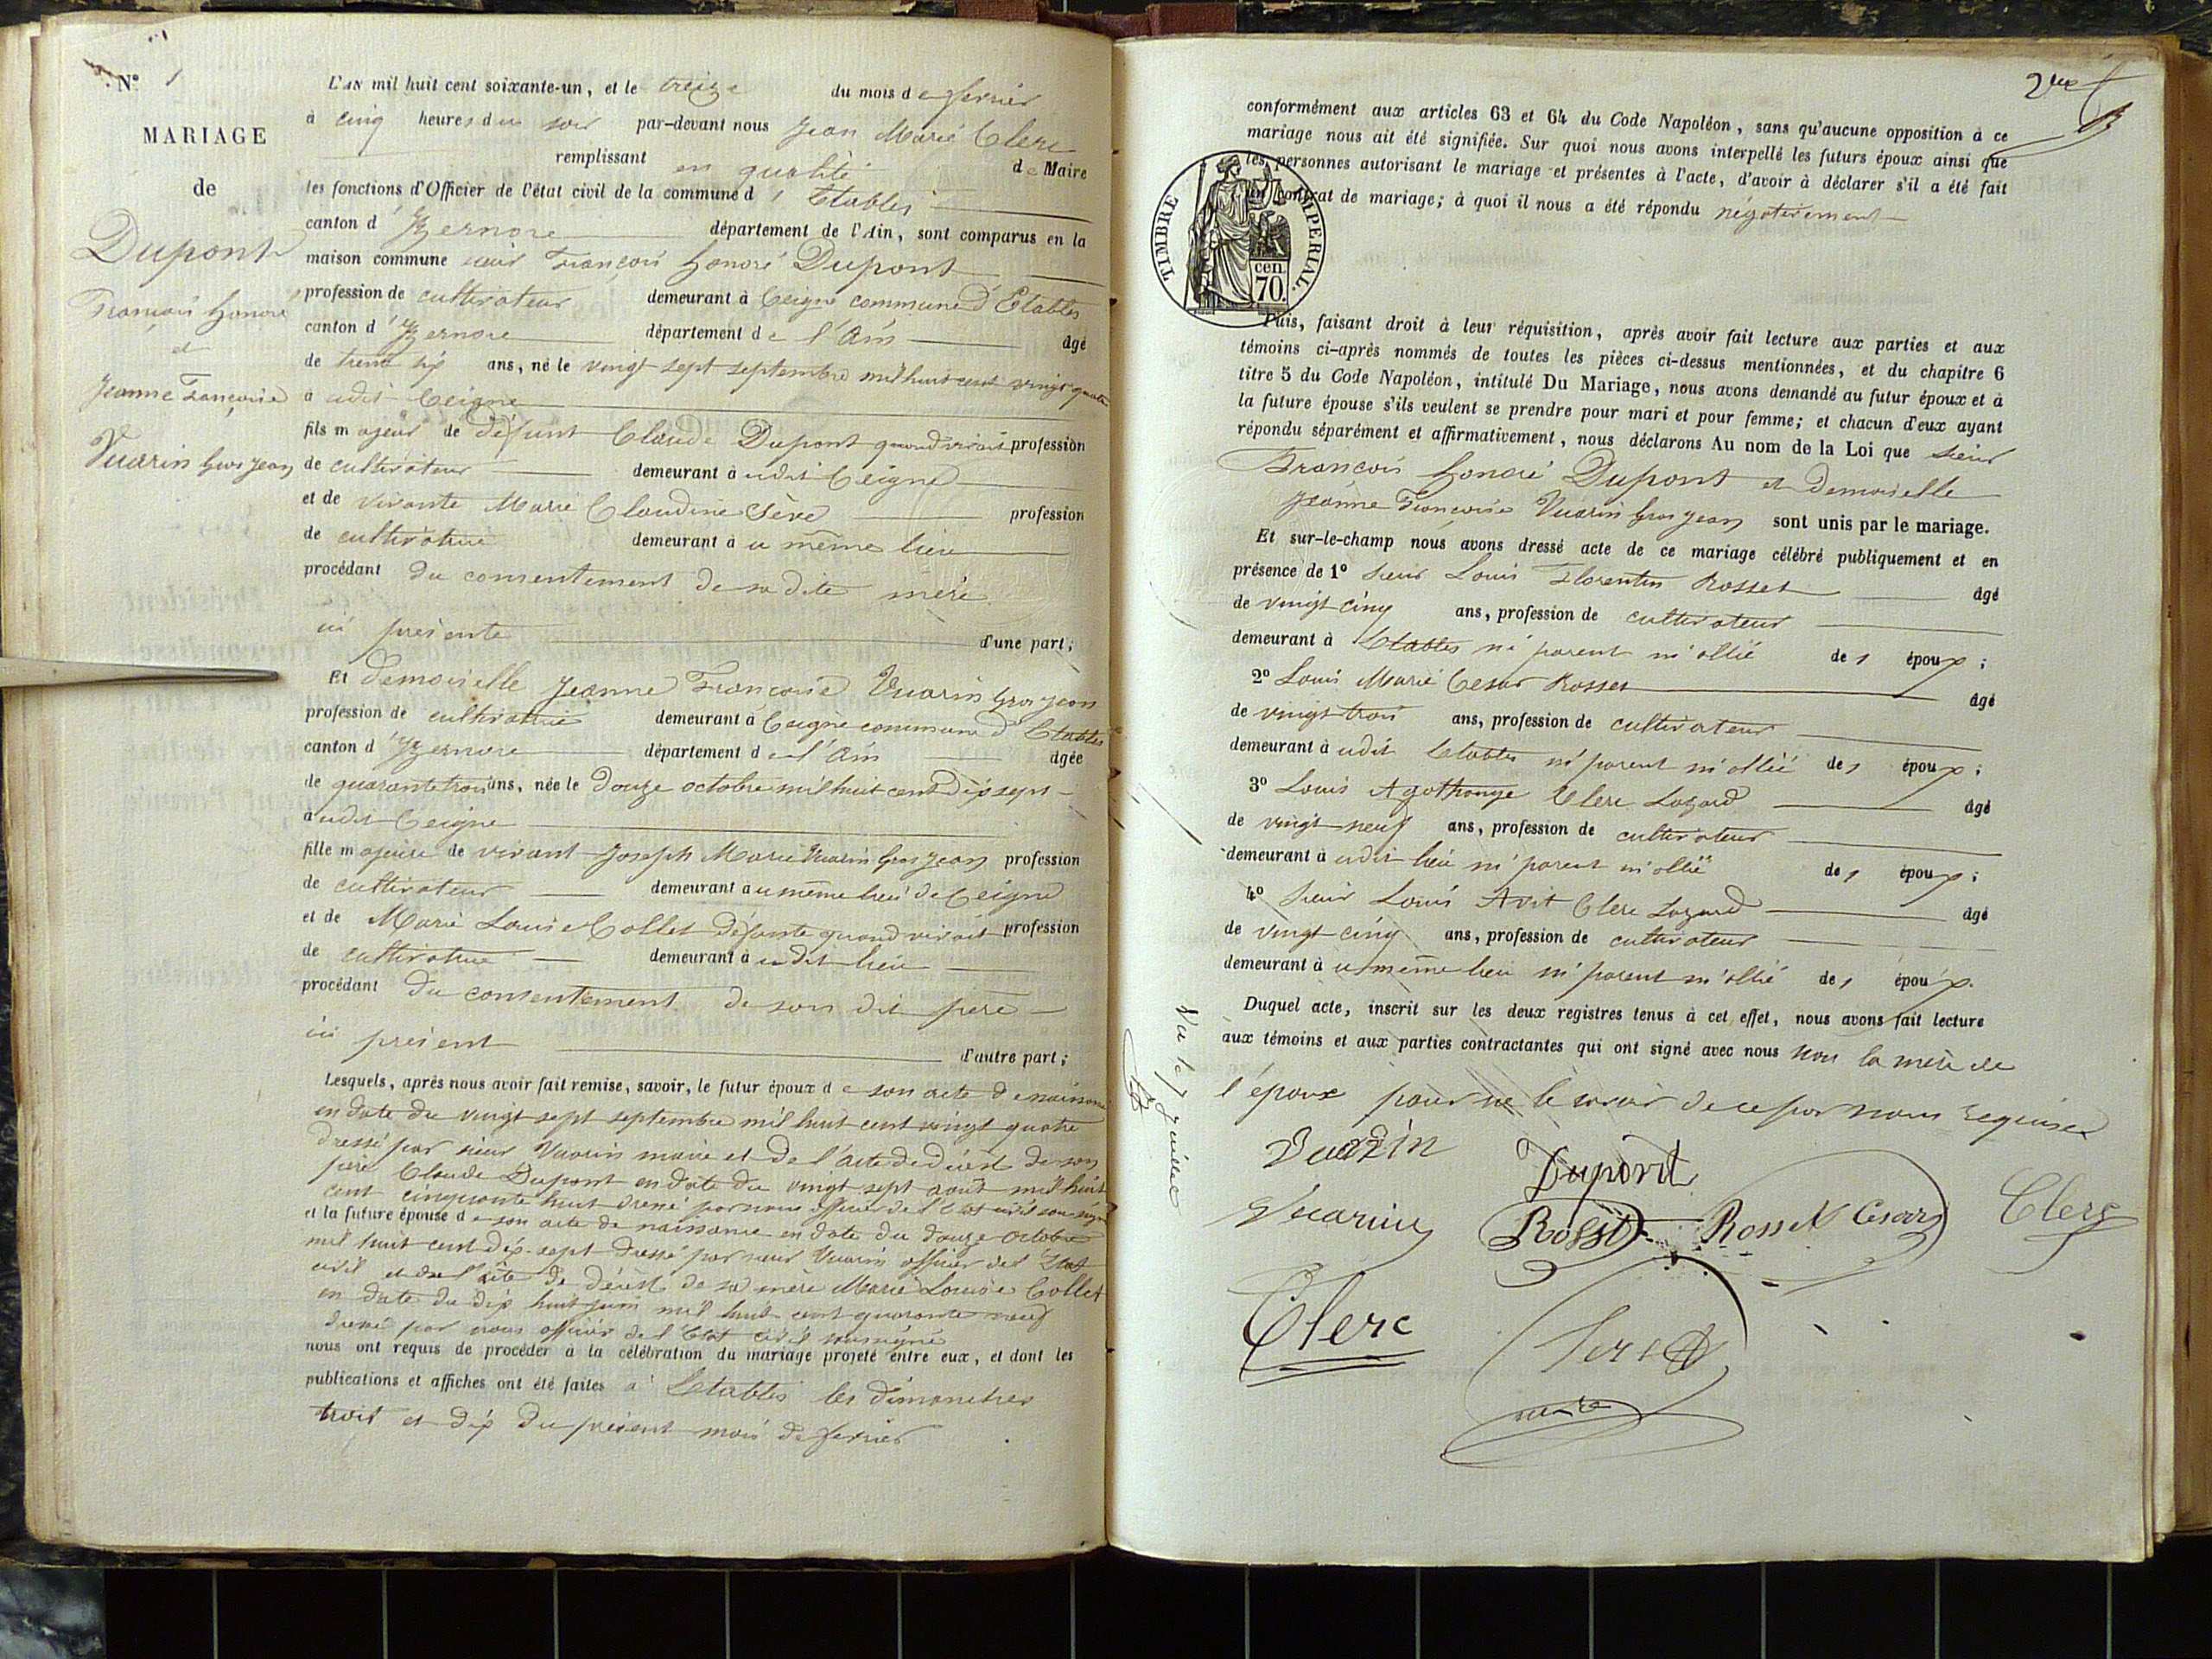 N.º 1
MARIAGE
de
Dupont
François honoré
et
Jeanne Françoise
Vuarin Gros Jean
L'AN mil huit cent soixante-un, et le treize du mois de fevrier
à cinq heures du soir par-devant nous Jean Marie Clerc
remplissant en qualité de Maire
les fonctions d'Officier de l'état civil de la commune d' Etables
canton d'Izernore département de l'Ain, sont comparus en la
maison commune sieur François honoré Dupont
profession de cultivateur demeurant à Ceigne commune d'Etables
canton d'Izernore département de l'Ain âgé
de trente six ans, né le vingt sept septembre mil huit cent vingt quatre
a udit Ceigne
fils majeur de défunt Claude Dupont quand vivait profession
de cultivateur demeurant à udit Ceigne
et de vivante Marie Claudine Sève profession
de cultivatrice demeurant à u même lieu
procédant du consentement de sa dite mère
ici présente d'une part;
Et demoiselle Jeanne Françoise Vuarin Gros Jean
profession de cultivatrice demeurant à Ceigne commune d'Etables
canton d'Izernore département de l'Ain âgée
de quarante trois ans, née le douze octobre mil huit cent dix sept
à udit Ceigne
fille majeure de vivant Joseph Marie Vuarin Gros Jean profession
de cultivateur demeurant au même lieu de Ceigne
et de Marie Louise Collet défunte quand vivait profession
de cultivatrice demeurant à udit lieu
procédant du consentement de son dit père
ici présent d'autre part;
Lesquels, après nous avoir fait remise, savoir, le futur époux de son acte de naissance
en date du vingt sept septembre mil huit cent vingt quatre
dressé par sieur Vuarin maire et de l'acte de décès de son
père Claude Dupont en date du vingt sept août mil huit
cent cinquante huit dressé par nous officier de l'Etat civil soussigné
et la future épouse de son acte de naissance en date du douze octobre
mil huit cent dix-sept dressé par sieur Vuarin officier de l'Etat
civil et de l'acte de décès de sa mère Marie Louise Collet
en date du dix huit juin mil huit cent quarante neuf
dressé par nous officier de l'Etat civil soussigné
nous ont requis de procéder à la célébration du mariage projeté entre eux, et dont les
publications et affiches ont été faites a Etables les dimanches
trois et dix du présent mois de fevrier
2
conformément aux articles 63 et 64 du Code Napoléon, sans qu'aucune opposition à ce
mariage nous ait été signifiée. Sur quoi nous avons interpellé les futurs époux ainsi que
les personnes autorisant le mariage et présentes à l'acte, d'avoir à déclarer s'il a été fait
un contrat de mariage; à quoi il nous a été répondu négativement
TIMBRE IMPERIAL.
cen
70.
Puis, faisant droit à leur réquisition, après avoir fait lecture aux parties et aux
témoins ci-après nommés de toutes les pièces ci-dessus mentionnées, et du chapitre 6
titre 5 du Code Napoléon, intitulé Du Mariage, nous avons demandé au futur époux et à
la future épouse s'ils veulent se prendre pour mari et pour femme; et chacun d'eux ayant
répondu séparément et affirmativement, nous déclarons Au nom de la Loi que sieur
François honoré Dupont et demoiselle
Jeanne Françoise Vuarin Gros Jean sont unis par le mariage.
Et sur-le-champ nous avons dressé acte de ce mariage célébré publiquement et en
présence de 1º sieur Louis Florentin Rosset âgé
de vingt cinq ans, profession de cultivateur
demeurant à Etables ni parent ni allié des époux;
2º Louis Marie Cesar Rosset âgé
de vingt trois ans, profession de cultivateur
demeurant à udit Etables ni parent ni allié des époux;
3º Louis Agathange Clerc Lazard âgé
de vingt neuf ans, profession de cultivateur
demeurant à udit lieu ni parent ni allié des époux;
4º sieur Louis Avit Clerc Lazard âgé
de vingt cinq ans, profession de cultivateur
demeurant à u même lieu ni parent ni allié des époux.
Duquel acte, inscrit sur les deux registres tenus à cet effet, nous avons fait lecture
aux témoins et aux parties contractantes qui ont signé avec nous non la mère de
l'époux pour ne le savoir de ce par nous requise
Vuarin Dupont
Vuarin Rosset Rosset Cesar Clerc
Clerc Clerc
maire
Vu le 7 juillet